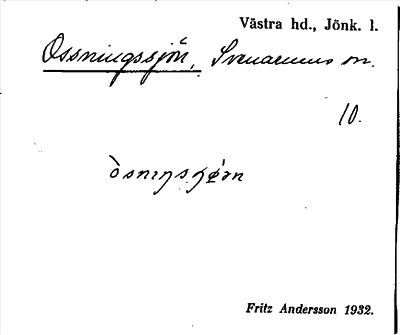 Västra hd., Jönk. l.
Ossningssjön, Svenarums sn.
10.
Fritz Andersson 1932.